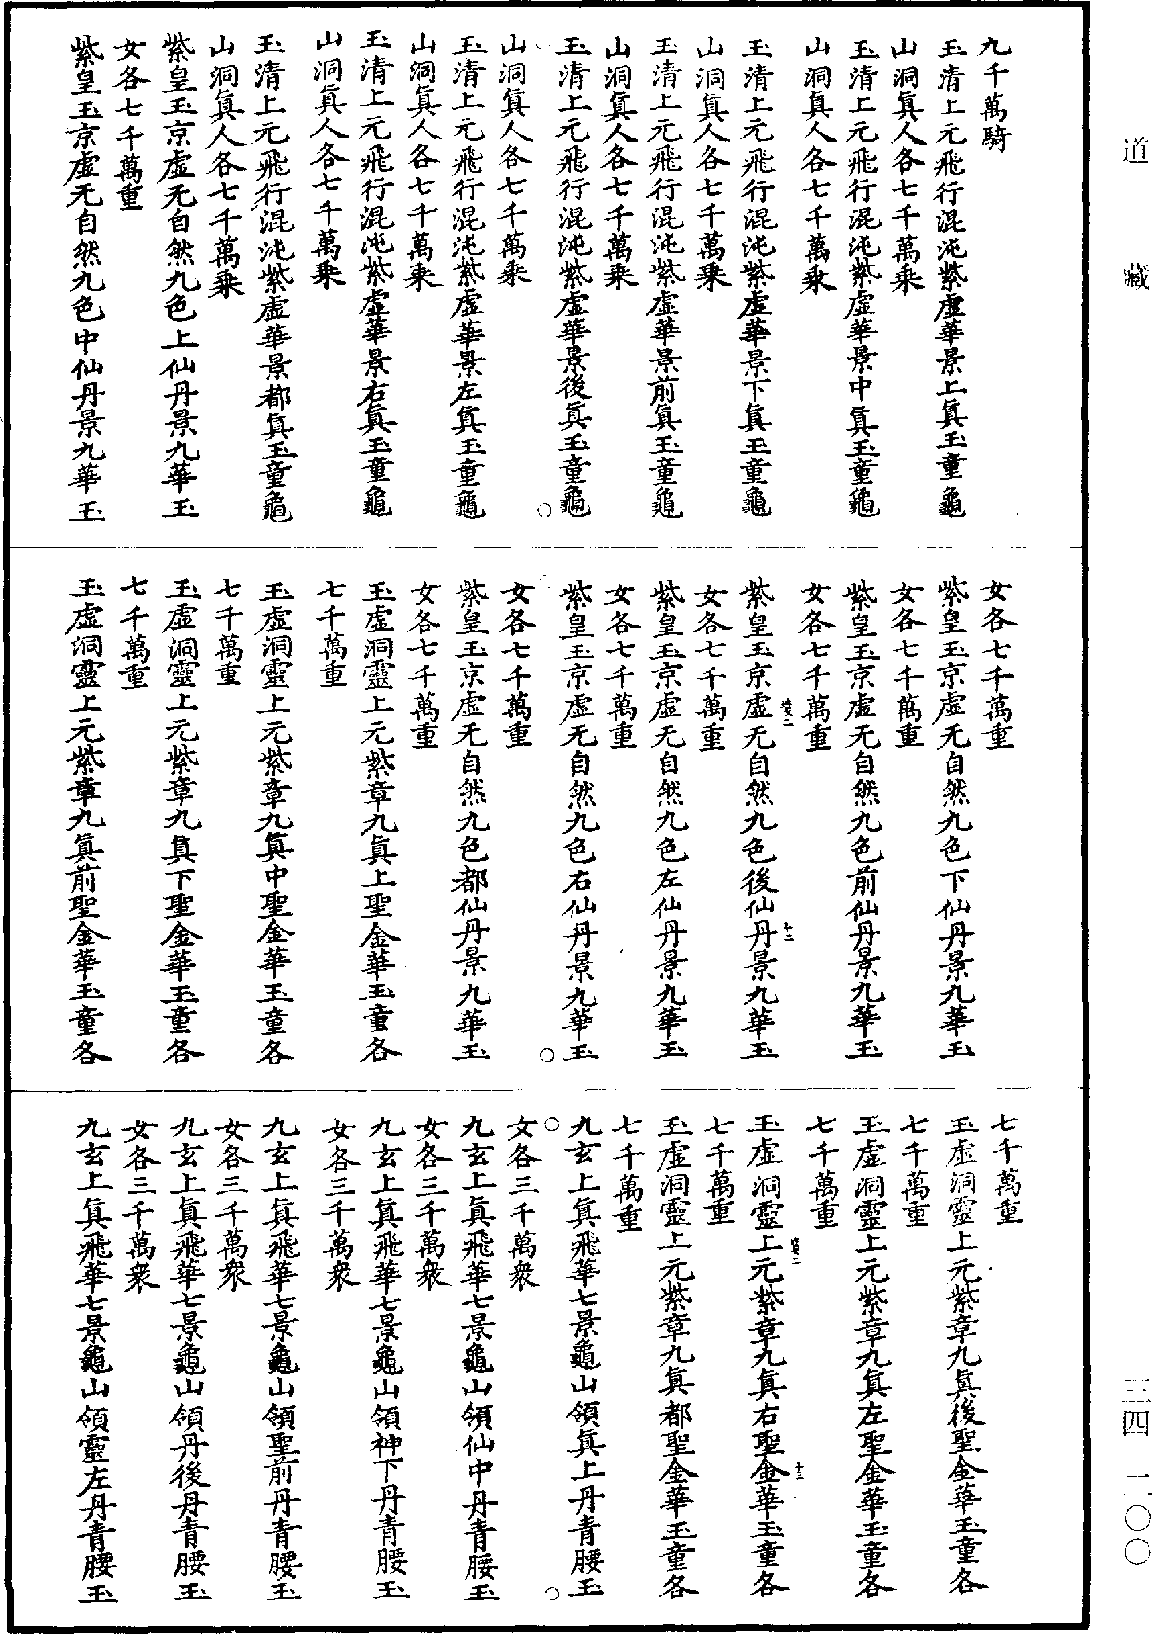 道藏
九千萬騎
玉清上元飛行混沌紫虛華景上真玉童龜
山洞真人各七千萬乘
玉清上元飛行混沌紫虛華景中真玉童龜
山洞真人各七千萬乘
玉清上元飛行混沌紫虛華景下真玉童龜
山洞真人各七千萬乘
玉清上元飛行混沌紫虛華景前真玉童龜
山洞真人各七千萬乘
玉清上元飛行混沌紫虛華景後真玉童龜
山洞真人各七千萬乘
玉清上元飛行混沌紫虛華景左真玉童龜
山洞真人各七千萬乘
玉清上元飛行混沌紫虛華景右真玉童龜
山洞真人各七千萬乘
玉清上元飛行混沌紫虛華景都真玉童龜
山洞真人各七千萬乘
紫皇玉京虛无自然九色上仙丹景九華玉
女各七千萬重
紫皇玉京虛无自然九色中仙丹景九華玉
女各七千萬重
紫皇玉京虛无自然九色下仙丹景九華玉
女各七千萬重
紫皇玉京虛无自然九色前仙丹景九華玉
女各七千萬重
紫皇玉京虛无自然九色後仙丹景九華玉
女各七千萬重
紫皇玉京虛无自然九色左仙丹景九華玉
女各七千萬重
紫皇玉京虛无自然九色右仙丹景九華玉
女各七千萬重
紫皇玉京虛无自然九色都仙丹景九華玉
女各七千萬重
玉虛洞靈上元紫章九真上聖金華玉童各
七千萬重
玉虛洞靈上元紫章九真中聖金華玉童各
七千萬重
玉虛洞靈上元紫章九真下聖金華玉童各
七千萬重
玉虛洞靈上元紫章九真前聖金華玉童各
七千萬重
玉虛洞靈上元紫章九真後聖金華玉童各
七千萬重
玉虛洞靈上元紫章九真左聖金華玉童各
七千萬重
玉虛洞靈上元紫章九真右聖金華玉童各
七千萬重
玉虛洞靈上元紫章九真都聖金華玉童各
七千萬重
九玄上真飛華七景龜山領真上丹青腰玉
女各三千萬衆
九玄上真飛華七景龜山領仙中丹青腰玉
女各三千萬衆
九玄上真飛華七景龜山領神下丹青腰玉
女各三千萬衆
九玄上真飛華七景龜山領聖前丹青腰玉
女各三千萬衆
九玄上真飛華七景龜山領丹後丹青腰玉
女各三千萬衆
九玄上真飛華七景龜山領靈左丹青腰玉
三四 二〇〇